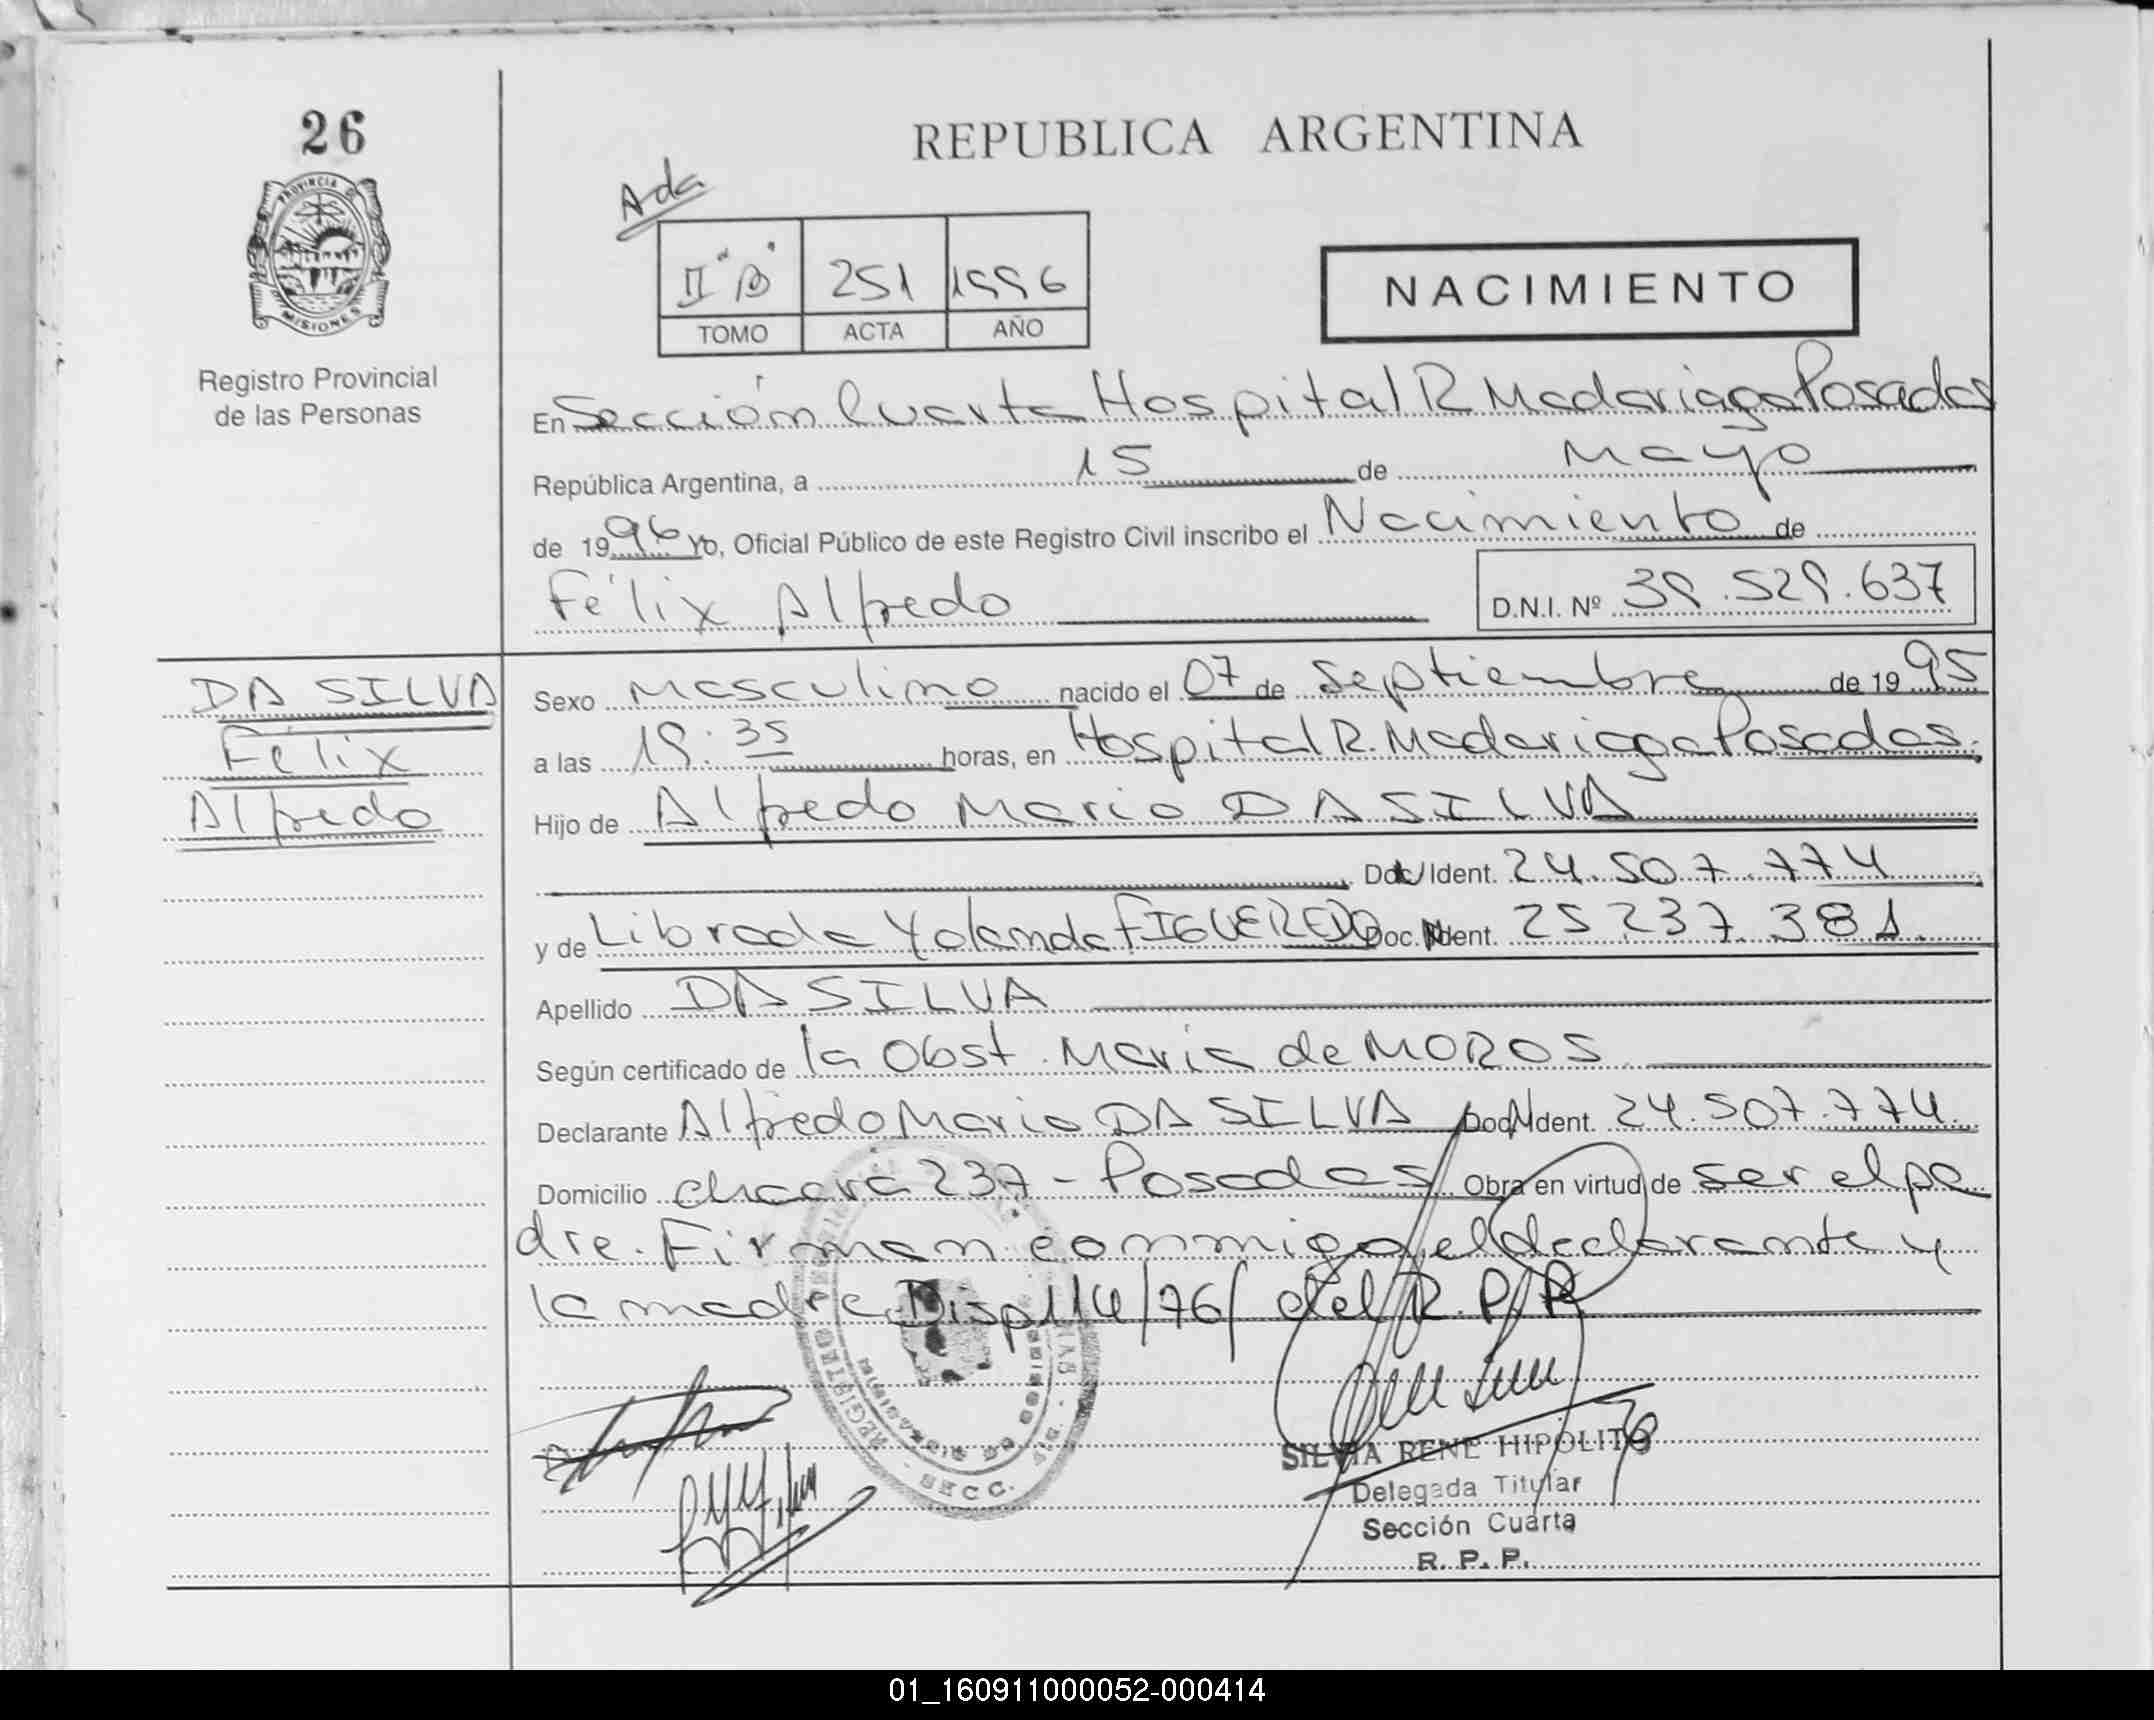 26
REPUBLICA ARGENTINA
Ada
PROVINCIA D
MISIONES
II "B" 251 1996
TOMO ACTA AÑO
NACIMIENTO
Registro Provincial
de las Personas
En Sección Cuarta Hospital R Madariaga Posadas
República Argentina, a 15 de Mayo
de 1996 Yo, Oficial Público de este Registro Civil inscribo el Nacimiento de
Félix Alfredo D.N.I. Nº 39.529.637
DA SILVA
Félix
Alfredo
Sexo Masculino nacido el 07 de Septiembre de 1995
a las 19:35 horas, en Hospital R. Madariaga Posadas.
Hijo de Alfredo Mario DA SILVA
Doc/Ident. 24.507.774
y de Librada Yolanda FIGUEREDO Doc. Ident. 25 237. 381.
Apellido DA SILVA
Según certificado de la Obst. Maria de MOROS
Declarante Alfredo Mario DA SILVA Doc Ident. 24.507.774.
Domicilio chacra 237 - Posadas Obra en virtud de ser el pa
dre. Firman conmigo el declarante y
la madre Disp 114/76/ del R.P.P.
REGISTRO
SECC.
SILVIA RENE HIPOLITO
Delegada Titular
Sección Cuarta
R. P. P.
01_160911000052-000414